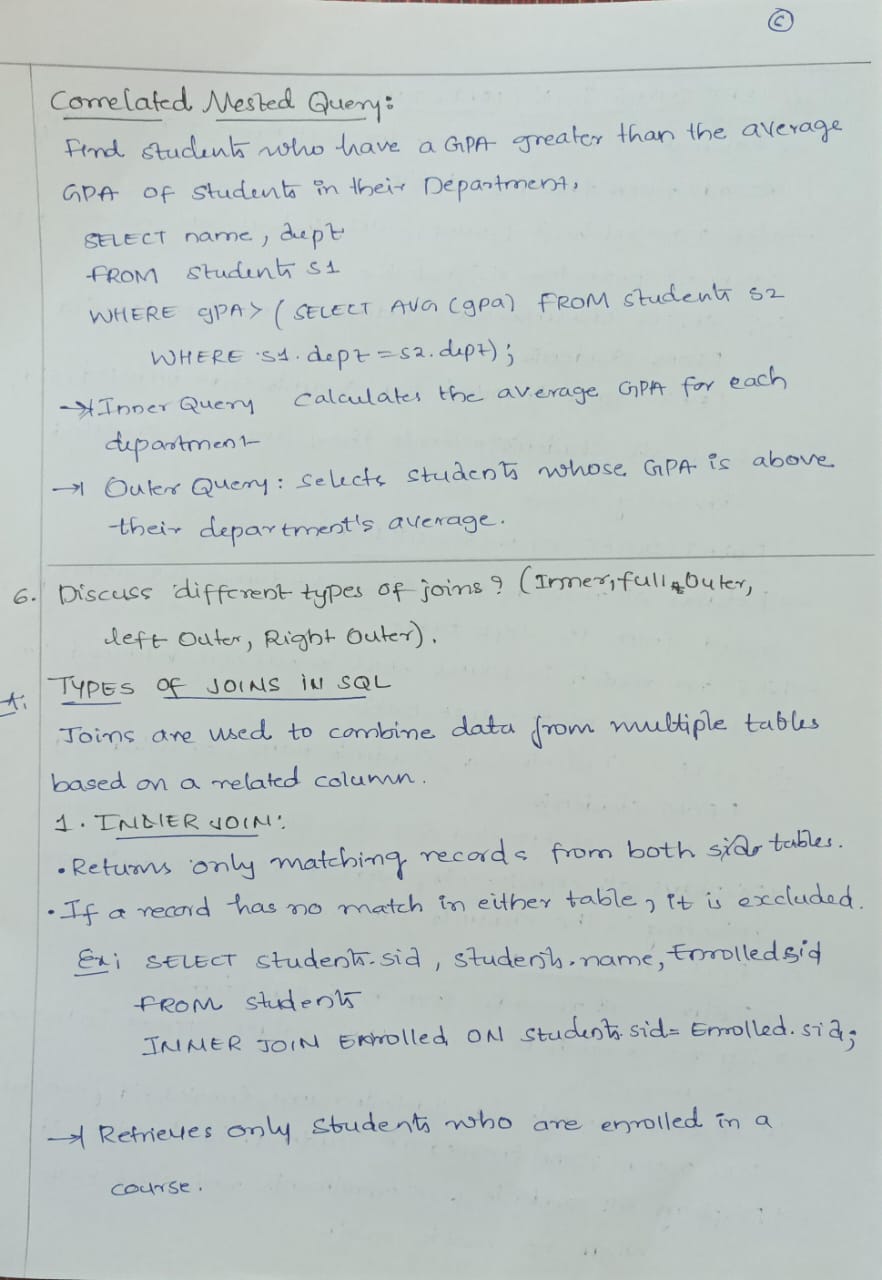 C
Correlated Nested Query:
Find students who have a GPA greater than the average
GPA of students in their Department.
SELECT name, dept
FROM Students S1
WHERE gPA > (SELECT AVG (gpa) FROM students S2
WHERE S1.dept = S2.dept);
→ Inner Query calculates the average GPA for each
department
→ Outer Query: Selects students whose GPA is above
their department's average.
6. Discuss different types of joins? (Inner, full Outer,
left Outer, Right Outer).
A: TYPES OF JOINS IN SQL
Joins are used to combine data from multiple tables
based on a related column.
1. INNER JOIN:
• Returns only matching records from both tables.
• If a record has no match in either table, it is excluded.
Ex: SELECT students.sid, students.name, Enrolled sid
FROM students
INNER JOIN Enrolled ON students.sid = Enrolled.sid;
→ Retrieves only students who are enrolled in a
course.